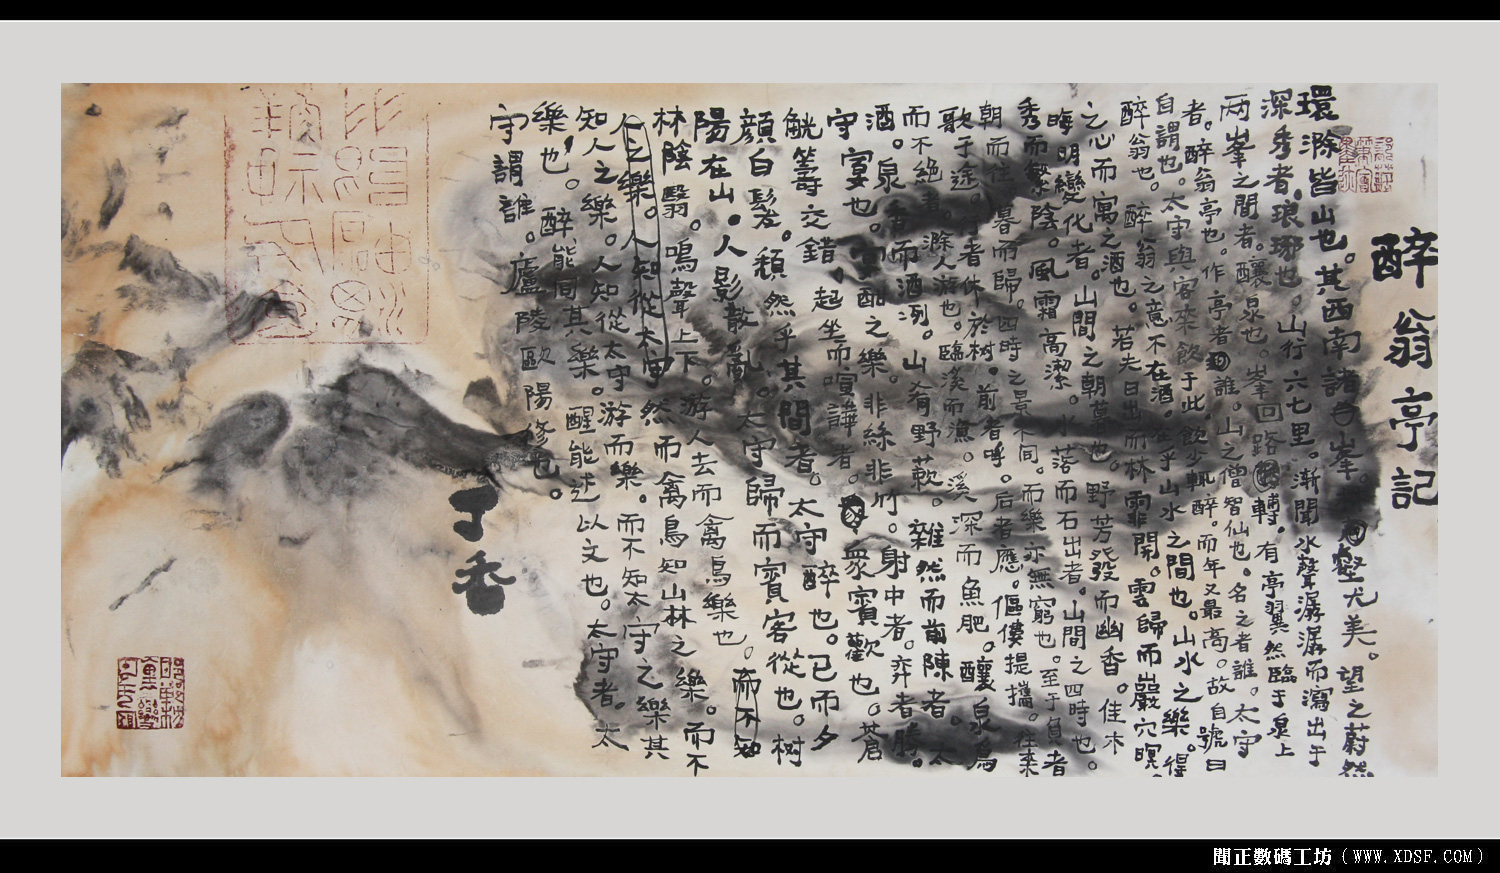 醉翁亭記
環滁皆山也。其西南諸峯。壑尤美。望之蔚然
深秀者。琅琊也。山行六七里。漸聞水聲潺潺而瀉出于
两峯之間者。釀泉也。峯回路轉。有亭翼然臨于泉上
者。醉翁亭也。作亭者誰。山之僧智仙也。名之者誰。太守
自謂也。太守與客來飲于此。飲少輒醉。而年又最高。故自號曰
醉翁也。醉翁之意不在酒。在乎山水之間也。山水之樂。得
之心而寓之酒也。若夫日出而林霏開。雲歸而巖穴暝。
晦明變化者。山間之朝暮也。野芳發而幽香。佳木
秀而繁陰。風霜高潔。水落而石出者。山間之四時也。
朝而往。暮而歸。四時之景不同。而樂亦無窮也。至于負者
歌于途。行者休於树。前者呼。后者應。傴僂提攜。往來
而不绝者。滁人游也。臨溪而漁。溪深而魚肥。釀泉爲
酒。泉香而酒洌。山肴野蔌。雜然而前陳者。太
守宴也。宴酣之樂。非絲非竹。射中者。弈者勝。
觥籌交錯。起坐而喧譁者。衆賓歡也。蒼
顔白髮。頹然乎其間者。太守醉也。已而夕
陽在山。人影散亂。太守歸而賓客從也。树
林陰翳。鳴聲上下。游人去而禽鳥樂也。而不知
人之樂。人知從太守然而禽鳥知山林之樂。而不
知人之樂。人知從太守游而樂。而不知太守之樂其
樂也。醉能同其樂。醒能述以文也。太守者。太
守謂誰。廬陵歐陽修也。
丁香
聞正數碼工坊（WWW.XDSF.COM）